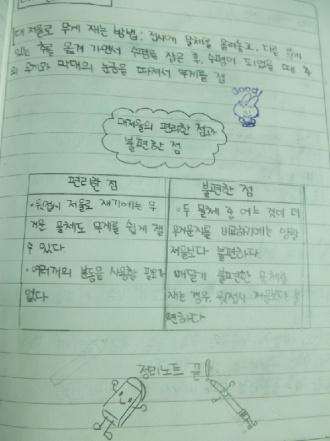 대저울로 무게 재는 방법: 접시에 물체를 올려놓고, 다른 쪽에
있는 추를 옮겨 가면서 수평을 잡은 후, 수평이 되었을 때 추
의 무게와 막대의 눈금을 따져서 무게를 잼
good
대저울의 편리한 점과
불편한 점
편리한 점
불편한 점
·윗접시 저울로 재기에는 무
거운 물체도 무게를 쉽게 잴
수 있다
·여러개의 분동을 사용할 필요가
없다
·두 물체 중 어느 것이 더
무거운지를 비교하기에는 양팔
저울보다 불편하다
매달기 불편한 물체를
재는 경우 윗접시 저울보다 불
편하다
정리노트 끝